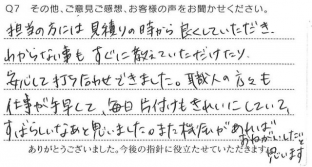 Q7 その他、ご意見ご感想、お客様の声をお聞かせください。
担当の方には見積りの時から良くしていただき、
わからない事もすぐに教えていただけたり、
安心して打ち合わせできました。職人の方々も
仕事が手早くて、毎日片付けもきれいにしていて、
すばらしいなぁと思いました。また機会があれば
おねがいしたいと
思います
ありがとうございました。今後の指針に役立たせていただきます